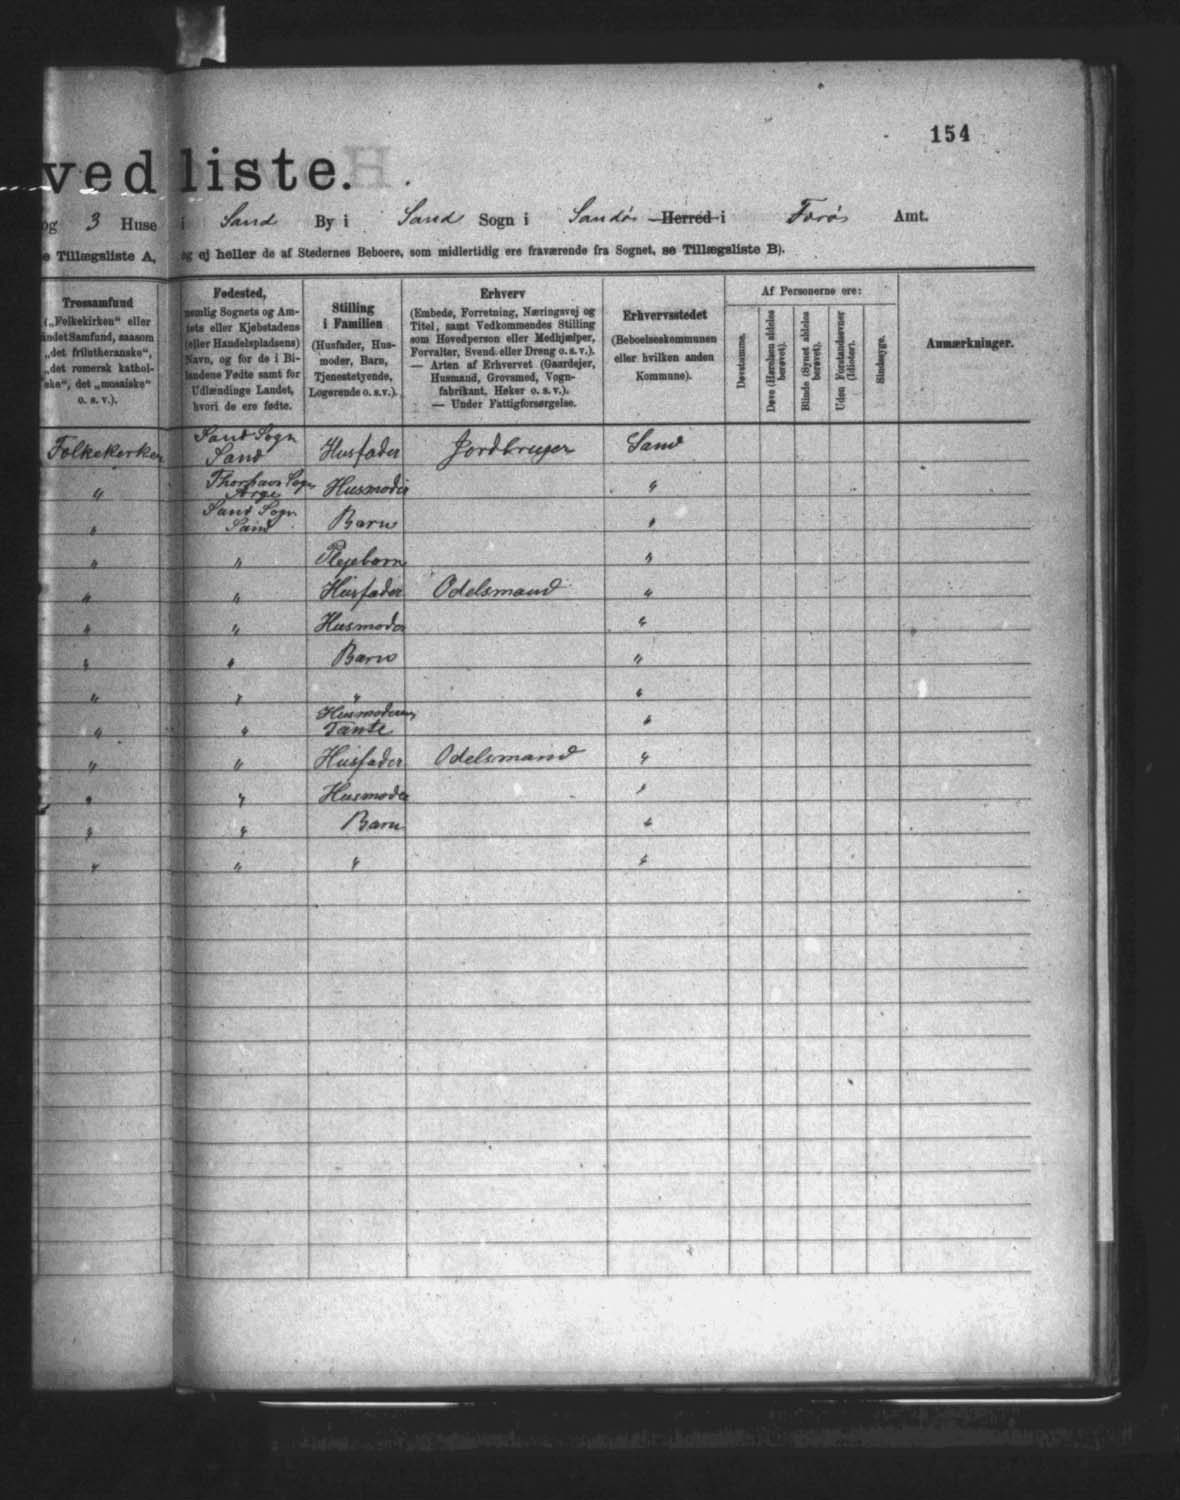 154
vedliste.
og 3 Huse i Sand By i Sand Sogn i Sandø Herred i Færø Amt.
e Tillægsliste A, og ej heller de af Stedernes Beboere, som midlertidig ere fraværende fra Sognet, se Tillægsliste B).
Trossamfund
(„Folkekirken“ eller
andet Samfund, saasom
„det frilutheranske“,
„det romersk kathol-
ske“, det „mosaiske“
o. s. v.).
Fødested,
nemlig Sognets og Am-
tets eller Kjøbstadens
(eller Handelspladsens)
Navn, og for de i Bi-
landene Fødte samt for
Udlændinge Landet,
hvori de ere fødte.
Stilling
i Familien
(Husfader, Hus-
moder, Barn,
Tjenestetyende,
Logerende o. s. v.).
Erhverv
(Embede, Forretning, Næringsvej og
Titel, samt Vedkommendes Stilling
som Hovedperson eller Medhjælper,
Forvalter, Svend eller Dreng o. s. v.).
— Arten af Erhvervet (Gaardejer,
Husmand, Grovsmed, Vogn-
fabrikant, Høker o. s. v.).
— Under Fattigforsørgelse.
Erhvervsstedet
(Beboelseskommunen
eller hvilken anden
Kommune).
Af Personerne ere:
Døvstumme.
Døve (Hørelsen aldeles
berøvet).
Blinde (Synet aldeles
berøvet).
Uden Forstandsevner
(Idioter).
Sindssyge.
Anmærkninger.
Folkekirken Sand Sogn Sand Husfader Jordbruger Sand
" Thorshavn Sogn Arge Husmoder "
" Sand Sogn Sand Barn "
" " Plejebarn "
" " Husfader Odelsmand "
" " Husmoder "
" " Barn "
" " " "
" " Husmoderens Tante "
" " Husfader Odelsmand "
" " Husmoder "
" " Barn "
" " " "